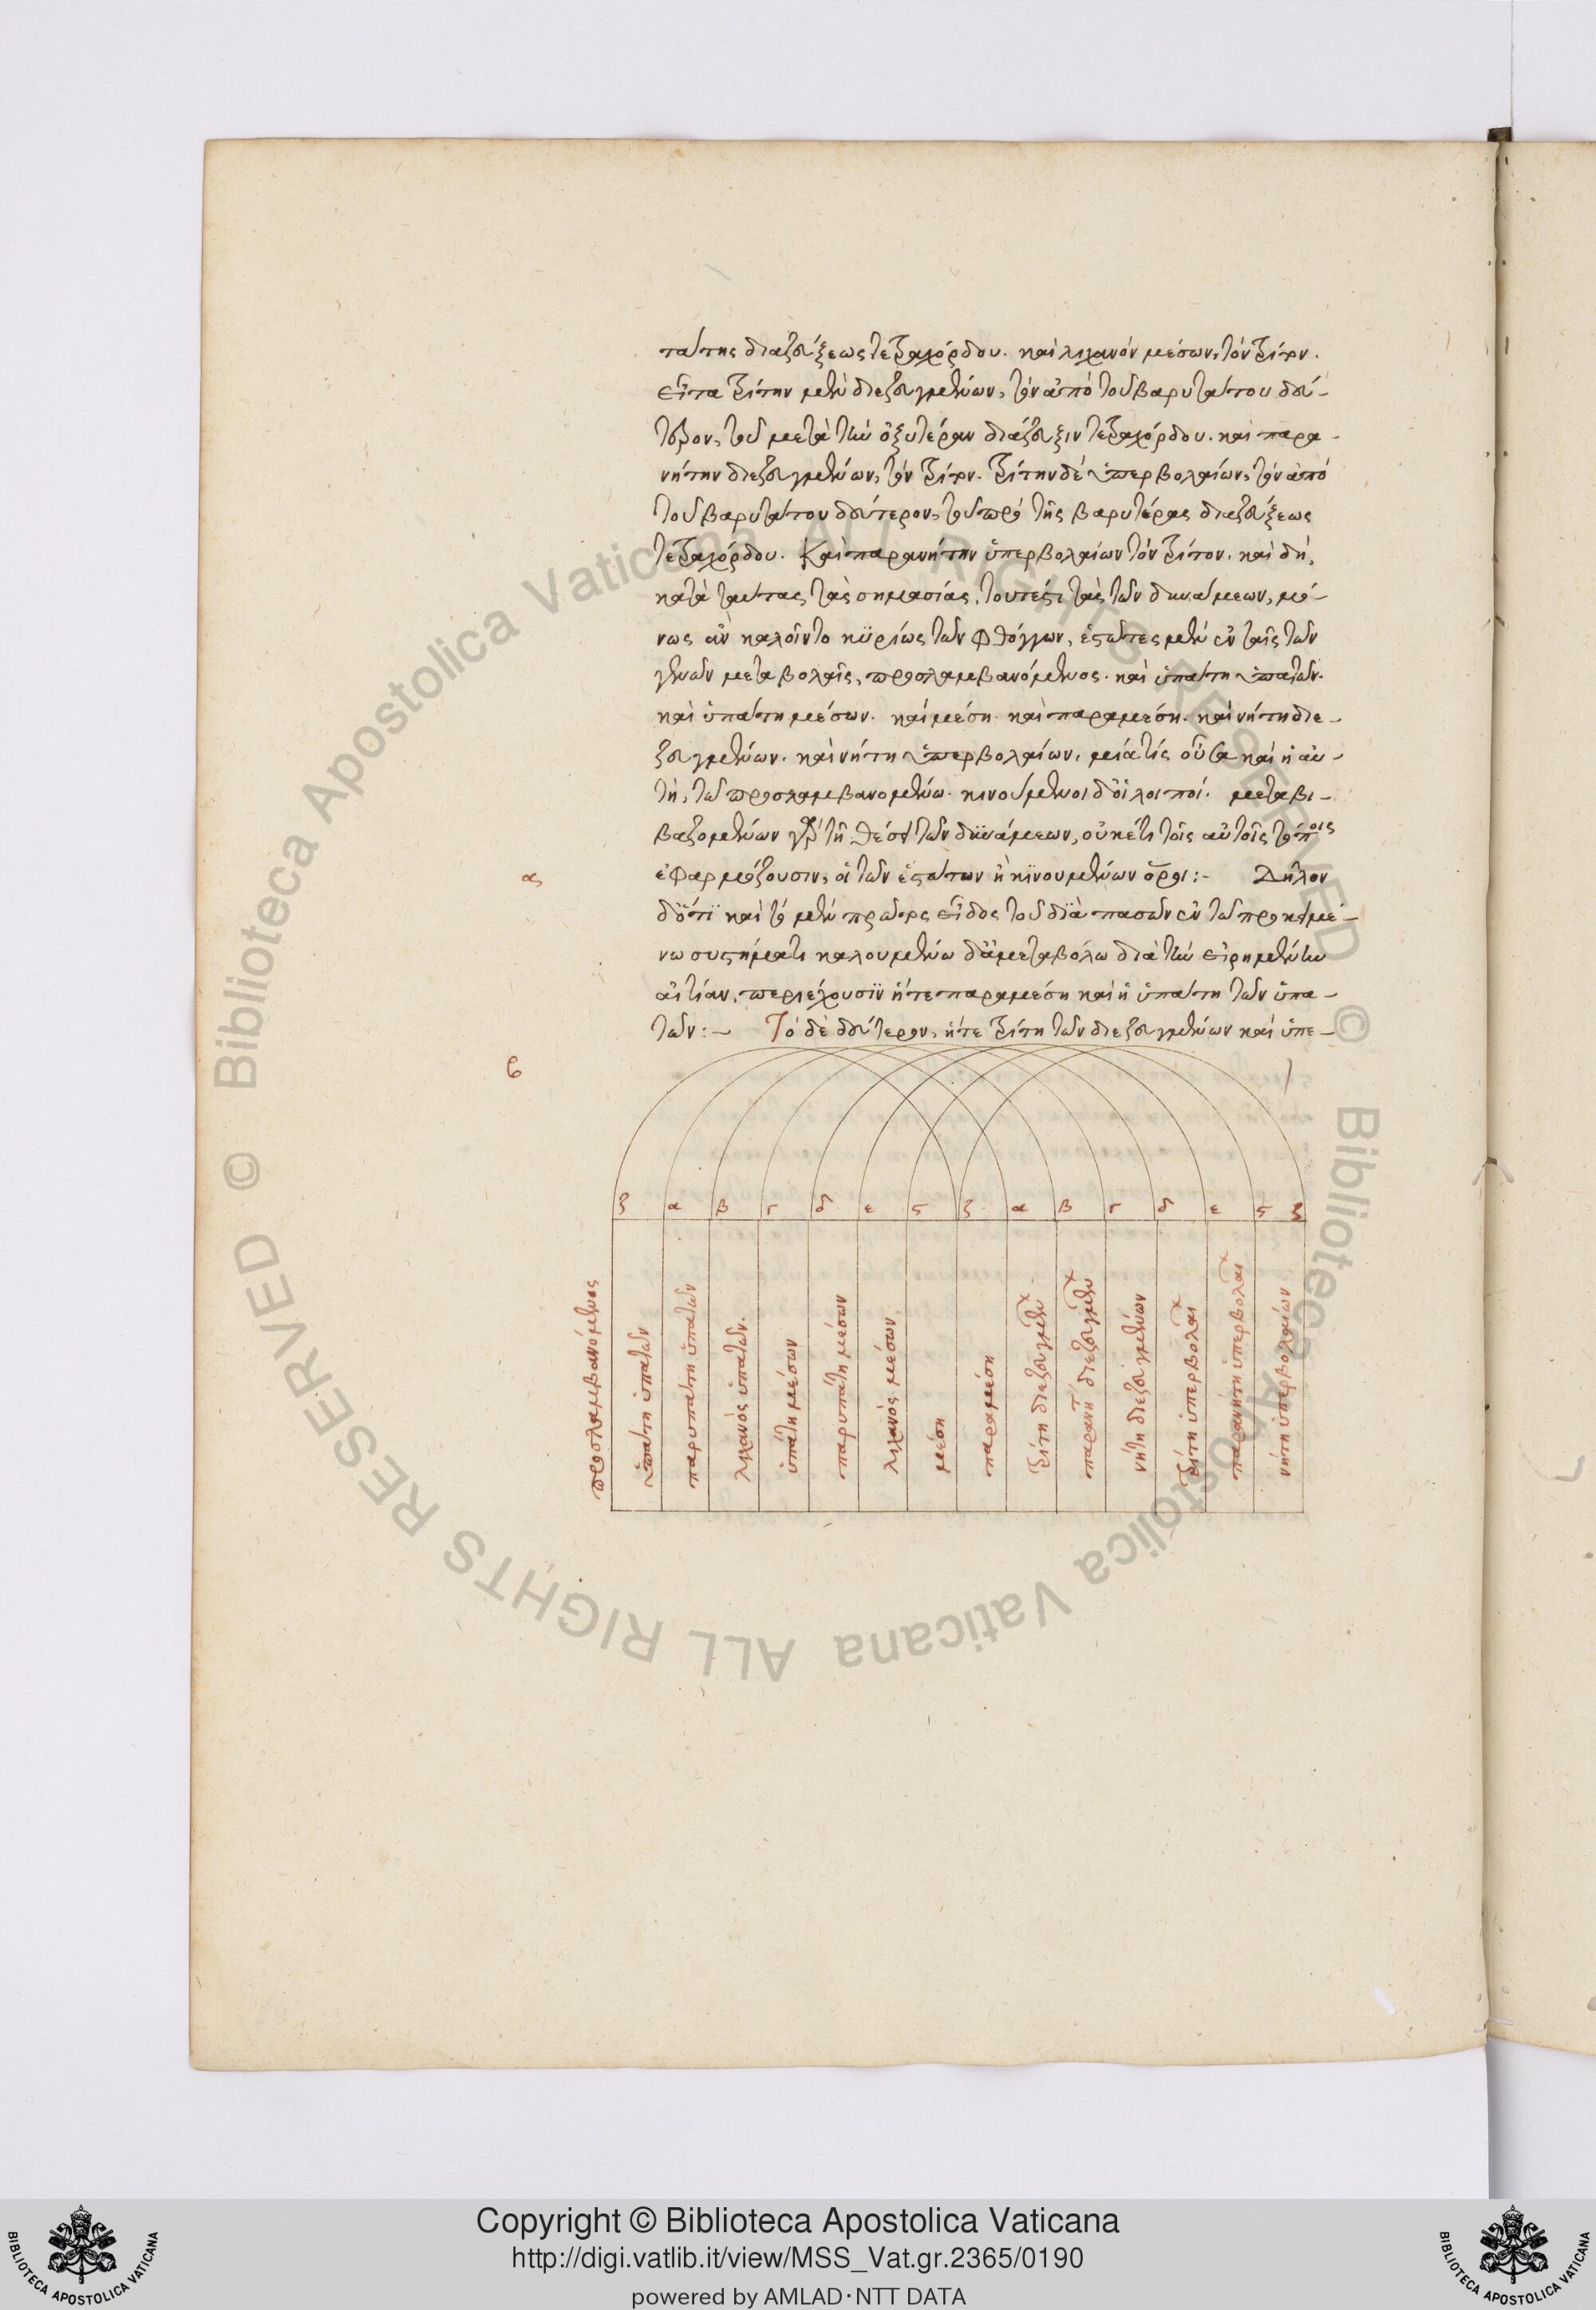 πάτης διαζεύξεως τετραχόρδου. καὶ λιχανὸν μέσων, τὸν τρίτον.
εἶτα τρίτην μὲν διεζευγμένων, τὸν ἀπὸ τοῦ βαρυτάτου δεύ-
τερον, τοῦ μετὰ τὴν ὀξυτέραν διάζευξιν τετραχόρδου. καὶ παρα-
νήτην διεζευγμένων, τὸν τρίτον. τρίτην δὲ ὑπερβολαίων, τὸν ἀπὸ
τοῦ βαρυτάτου δεύτερον, τοῦ πρὸ τῆς βαρυτέρας διαζεύξεως
τετραχόρδου. καὶ παρανήτην ὑπερβολαίων τὸν τρίτον. καὶ δὴ,
κατὰ ταύτας τὰς σημασίας, τουτέστι τὰς τῶν δυνάμεων, μό-
νως ἂν καλοῖντο κϋρίως τῶν φθόγγων, ἑστῶτες μὲν ἐν ταῖς τῶν
γενῶν μεταβολαῖς, προσλαμβανόμενος. καὶ ὑπάτη ὑπατῶν.
καὶ ὑπάτη μέσων. καὶ μέση. καὶ παραμέση. καὶ νήτη διε-
ζευγμένων. καὶ νήτη ὑπερβολαίων, μία τίς οὖσα καὶ ἡ αὐ-
τὴ, τῷ προσλαμβανομένῳ. κινούμενοι δ' οἱ λοιποί. μεταβι-
βαζομένων γὰρ τῇ θέσει τῶν δϋνάμεων, οὐκέτι τοῖς αὐτοῖς τόποις
α ἐφαρμόζουσιν, οἱ τῶν ἑστώτων ἢ κϊνουμένων ὅροι:- Δῆλον
δ' ὅτϊ καὶ τὸ μὲν πρῶτον εἶδος τοῦ διὰ πασῶν ἐν τῷ προκειμέ-
νῳ συστήματι καλουμένῳ δ' ἀμεταβόλῳ διὰ τὴν εἰρημένην
αἰτίαν, περιέχουσϊν ἥ τε παραμέση καὶ ἡ ὑπάτη τῶν ὑπα-
τῶν:- Τὸ δὲ δεύτερον, ἥ τε τρίτη τῶν διεζευγμένων καὶ ὑπε-
β
ζ α β γ δ ε ϛ ζ α β γ δ ε ϛ ζ
προσλαμβανόμενος
ὑπάτη ὑπατῶν
παρυπάτη ὑπατῶν
λιχανὸς ὑπατῶν.
ὑπάτη μέσων
παρυπάτη μέσων
λιχανὸς μέσων
μέση
παραμέση
τρίτη διεζευγμεν
παρανήτ διεζευγμεν
νήτη διεζευγμένων
τρίτη ὑπερβολαι
παρανήτη ὑπερβολαι
νήτη ὑπερβολαίων
© Biblioteca Apostolica Vaticana ALL RIGHTS RESERVED © Biblioteca Apostolica Vaticana ALL RIGHTS RESERVED
BIBLIOTECA APOSTOLICA VATICANA
Copyright © Biblioteca Apostolica Vaticana
http://digi.vatlib.it/view/MSS_Vat.gr.2365/0190
powered by AMLAD·NTT DATA
BIBLIOTECA APOSTOLICA VATICANA